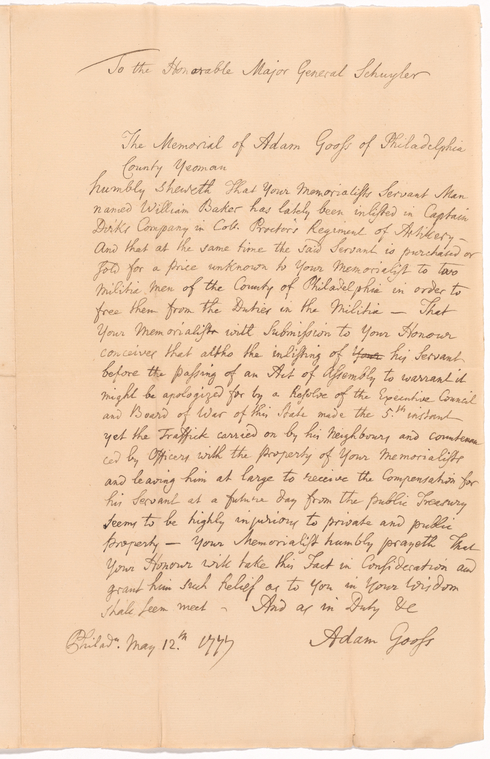 To the Honorable Major General Schuyler
The Memorial of Adam Gooss of Philadelphia
County Yeoman
humbly Sheweth That Your Memorialists Servant Man
named William Baker has lately been inlisted in Captain
Dorks Company in Coll. Proctors Regiment of Artillery –
And that at the same time the said Servant is purchased or
sold for a price unknown to Your Memorialist to two
Militia Men of the County of Philadelphia in order to
free them from the Duties in the Militia – That
Your Memorialist with Submission to Your Honour
conceives that altho the inlisting of Your his Servant
before the passing of an Act of Assembly to warrant it
might be apologized for by a Resolve of the Executive Council
and Board of War of this State made the 5.th instant
yet the Traffick carried on by his Neighbours and countenan
ced by Officers with the property of Your Memorialists
and leaving him at large to receive the Compensation for
his Servant at a future day from the public Treasury
seems to be highly injurious to private and public
property – Your Memorialist humbly prayeth That
Your Honour will take this Fact in Consideration and
grant him such Relief as to You in Your Wisdom
shall seem meet – And as in Duty &c
Philada. May 12.th 1777 Adam Gooss